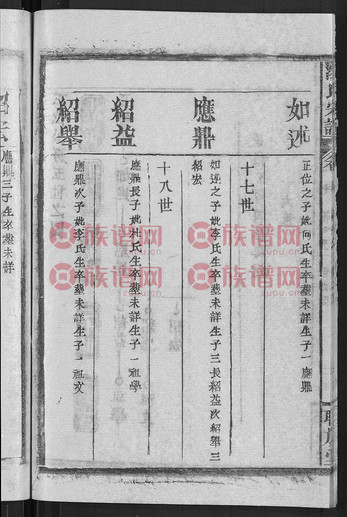 如述
正位之子妣向氏生卒塟未詳生子一應鼎
十七世
應鼎
如述之子妣李氏生卒塟未詳生子三長紹益次紹舉三
紹宏
十八世
紹益
應鼎長子妣杜氏生卒塟未詳生子一祖學
紹舉
應鼎次子妣李氏生卒塟未詳生子一祖文
應鼎三子生卒塟未詳
族谱网
zupu.cn